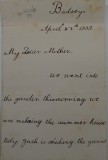 Batsey.
April 22nd 1888
My Dear Mother.
We went into
the garden this morning we
are making the summer house
tidy. Jack is picking the grass